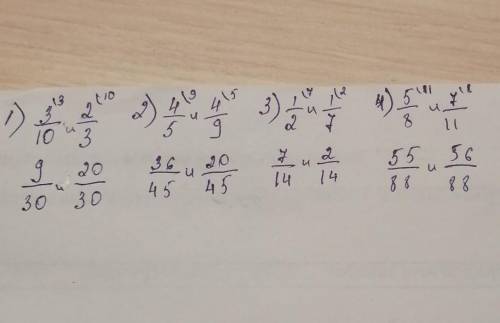 1) 3\3/10 и 2\10/3 2) 4\9/5 и 4\5/9 3) 1\7/2 и 1\2/7 4) 5\11/8 и 7\8/11
9/30 и 20/30 36/45 и 20/45 7/14 и 2/14 55/88 и 56/88